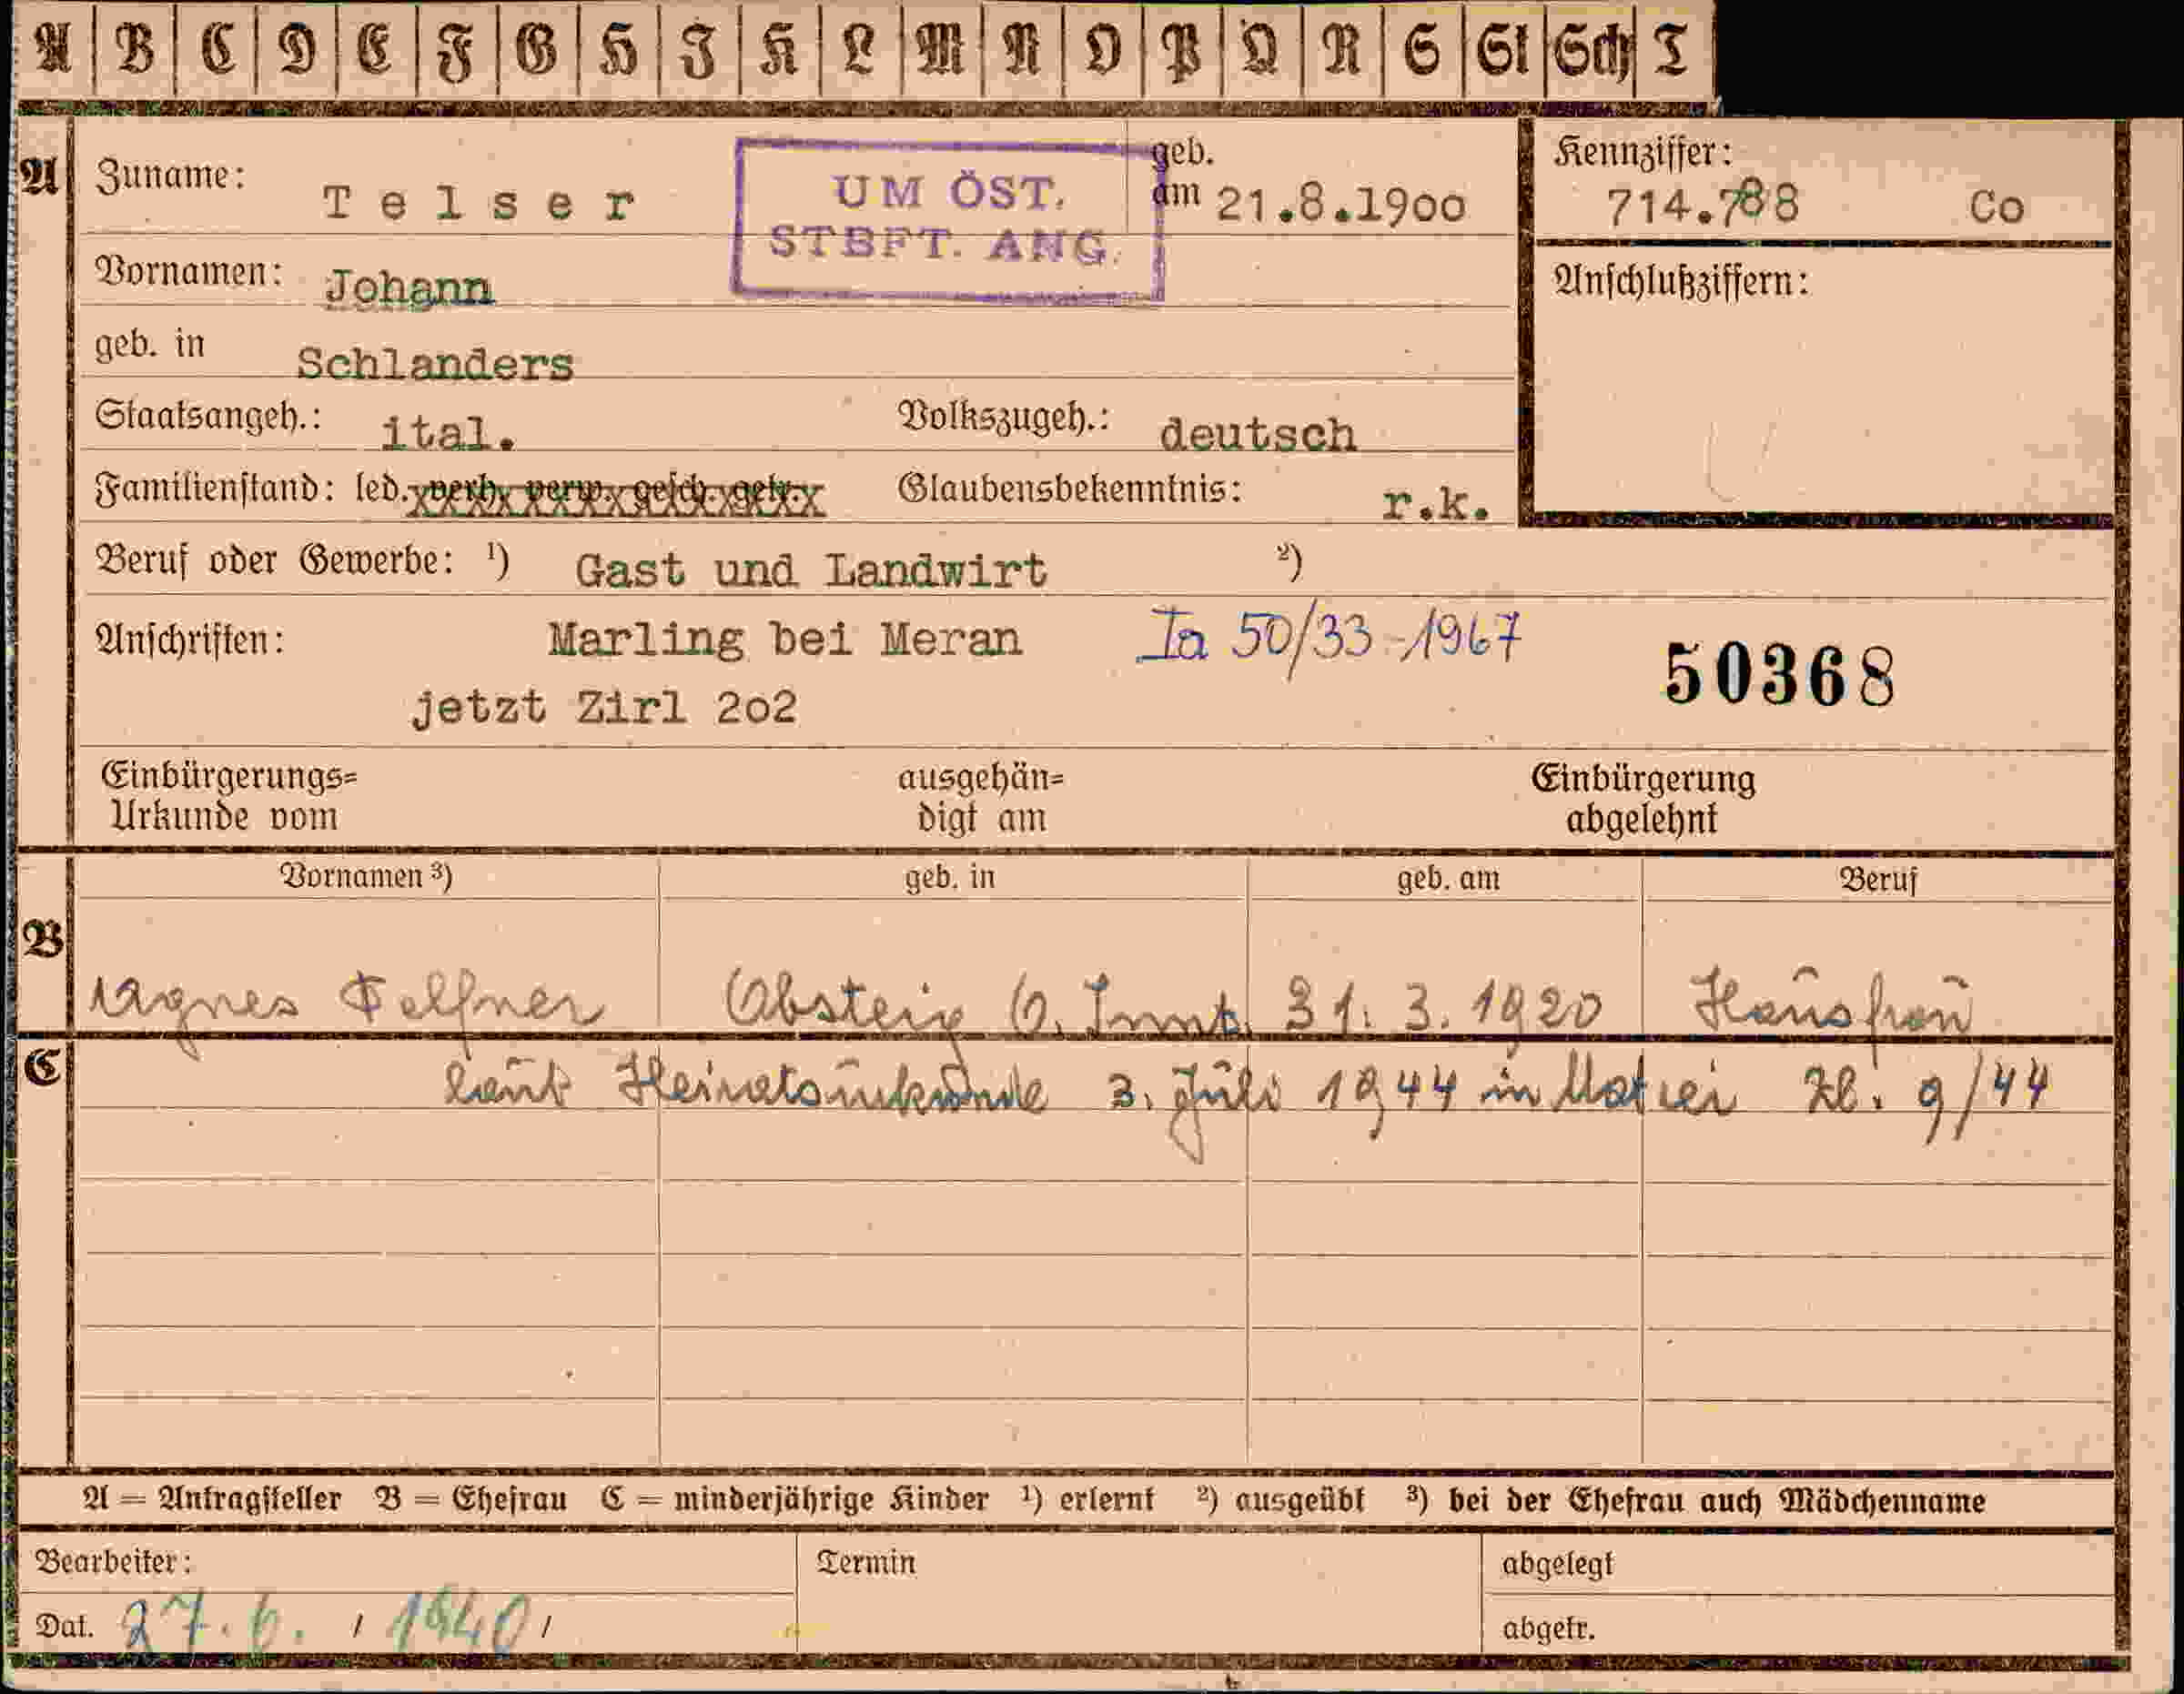 A B C D E F G H I K L M N O P Q R S St Sch T
A Zuname: Telser geb. am 21.8.1900 Kennziffer: 714.788 Co
UM ÖST.
STBFT. ANG.
Vornamen: Johann Anschlußziffern:
geb. in Schlanders
Staatsangeh.: ital. Volkszugeh.: deutsch
Familienstand: led. verh. verw. gesch. getr. Glaubensbekenntnis: r.k.
Beruf oder Gewerbe: ¹) Gast und Landwirt ²)
Anschriften: Marling bei Meran Ia 50/33-1967 50368
jetzt Zirl 202
Einbürgerungs= ausgehän= Einbürgerung
Urkunde vom digt am abgelehnt
Vornamen ³) geb. in geb. am Beruf
B
Agnes Obsteig O. Innt. 31. 3. 1920 Hausfrau
C laut Heiratsurkunde 3. Juli 1944 in Matrei Zl. 9/44
A = Antragsteller B = Ehefrau C = minderjährige Kinder ¹) erlernt ²) ausgeübt ³) bei der Ehefrau auch Mädchenname
Bearbeiter: Termin abgelegt
Dat. 27.6. / 1940 / abgetr.